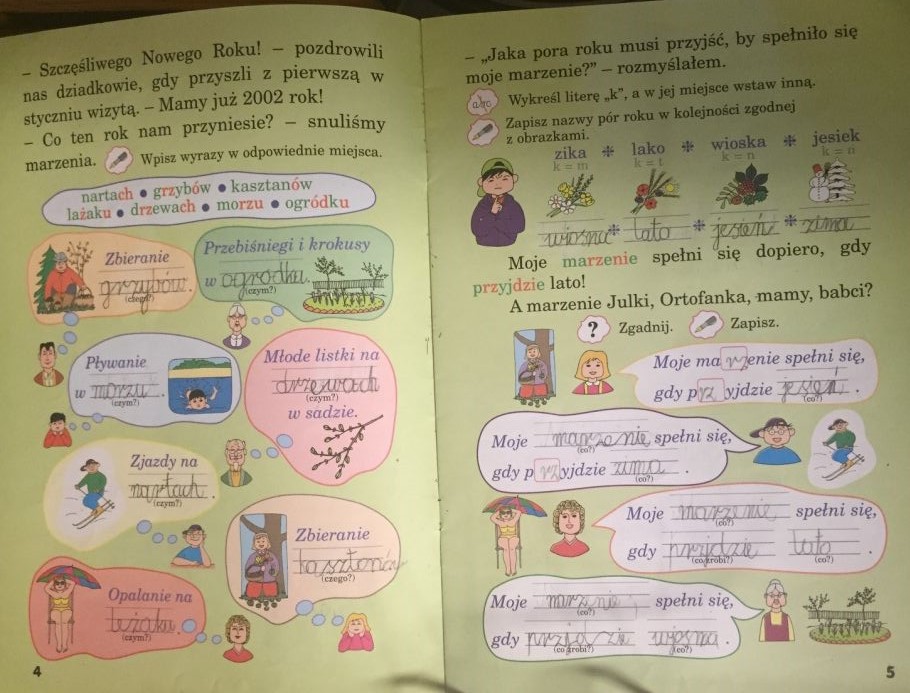 – Szczęśliwego Nowego Roku! – pozdrowili
nas dziadkowie, gdy przyszli z pierwszą w
styczniu wizytą. – Mamy już 2002 rok!
– Co ten rok nam przyniesie? – snuliśmy
marzenia. Wpisz wyrazy w odpowiednie miejsca.
nartach • grzybów • kasztanów
lażaku • drzewach • morzu • ogródku
Zbieranie
grzybów.
(czego?)
Przebiśniegi i krokusy
w ogrodku.
(czym?)
Pływanie
w morzu.
(czym?)
Młode listki na
drzewach
(czym?)
w sadzie.
Zjazdy na
nartach.
(czym?)
Zbieranie
kasztanów
(czego?)
Opalanie na
leżaku.
(czym?)
4
– „Jaka pora roku musi przyjść, by spełniło się
moje marzenie?” – rozmyślałem.
abc Wykreśl literę „k”, a w jej miejsce wstaw inną.
Zapisz nazwy pór roku w kolejności zgodnej
z obrazkami.
zika lako wioska jesiek
k = m k = t k = n k = n
wiosna lato jesień zima
Moje marzenie spełni się dopiero, gdy
przyjdzie lato!
A marzenie Julki, Ortofanka, mamy, babci?
? Zgadnij. Zapisz.
Moje marzenie spełni się,
gdy przyjdzie jesień.
(co?)
Moje marzenie spełni się,
(co?)
gdy przyjdzie zima.
(co?)
Moje marzenie spełni się,
(co?)
gdy przjdzie lato.
(co robi?) (co?)
Moje marzenie spełni się,
(co?)
gdy przjdzie wiosna.
(co robi?) (co?)
5